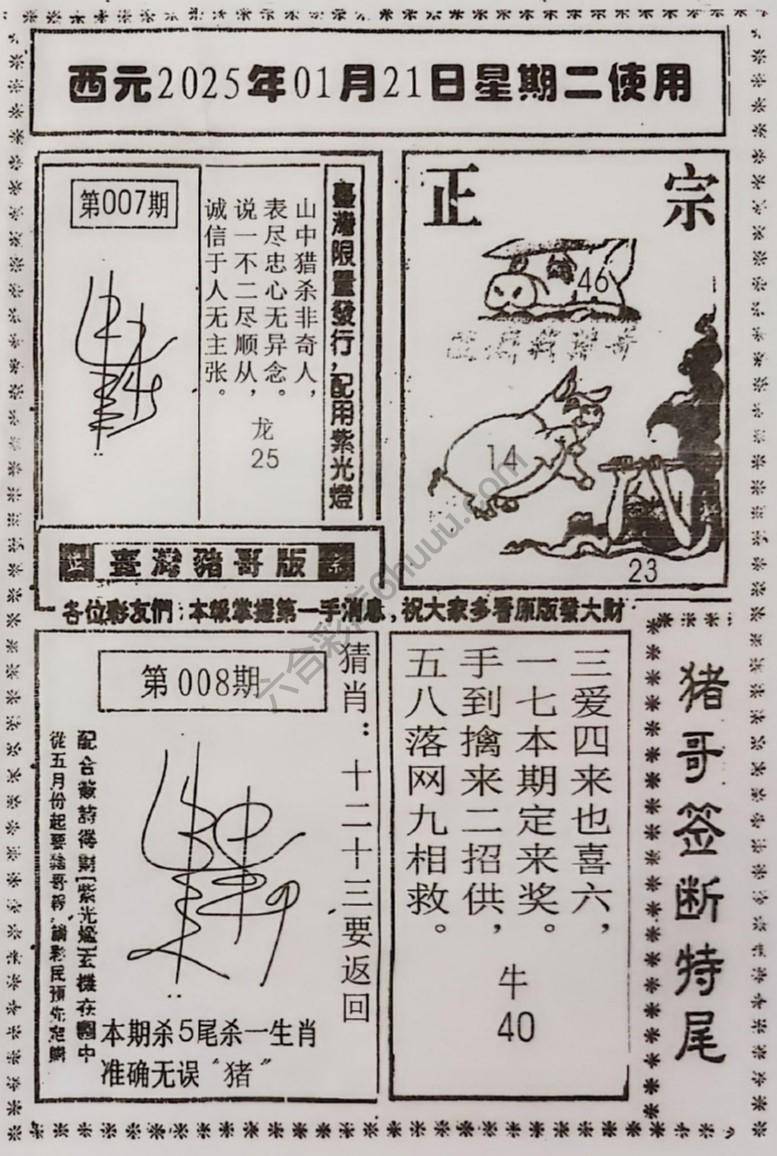 西元2025年01月21日星期二使用
第007期
臺灣限量發行,配用紫光燈
山中猎杀非奇人，
表尽忠心无异念。
说一不二尽顺从，
诚信于人无主张。
龙
25
正宗
46
14
23
正 臺灣豬哥版
各位彩友們:本報掌握第一手消息,祝大家多看原版發大財
第008期
猜肖：十二十三要返回
配合藏詩得財[紫光燈]玄機在圖中
從五月份起要豬哥報,請彩民預先定購
本期杀5尾杀一生肖
准确无误“猪”
三爱四来也喜六，
一七本期定来奖。
手到擒来二招供，
五八落网九相救。
牛
40
猪哥签断特尾
六合彩库6huuu.com